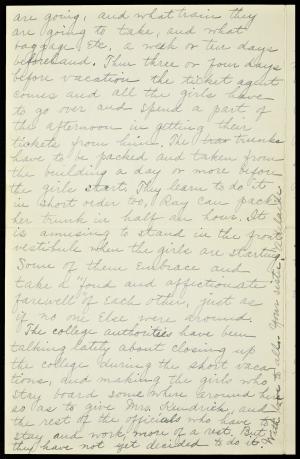 are going, and what train they
are going to take, and what
baggage etc. a week or ten days
beforehand. Then three or four days
before vacation the ticket agent
comes and all the girls have
to go over and spend a part of
the afternoon in getting their
tickets from him. The trunks
have to be packed and taken from
the building a day or more before
the girls start. They learn to do it
in short order too, Ray can pack
her trunk in half an hour. It
is amusing to stand in the front
vestibule when the girls are starting.
Some of them embrace and
take a "fond and affectionate
farewell of each other, just as
if no one else were around.
The college authorities have been
talking lately about closing up
the college during the short vaca-
tions, and making the girls who
stay board some where around here
so as to give Mrs. Kendrick, and
the rest of the officials who have to
stay and work, more of a rest. But
they have not yet decided to do it.
With love to all Your sister, Adelaide